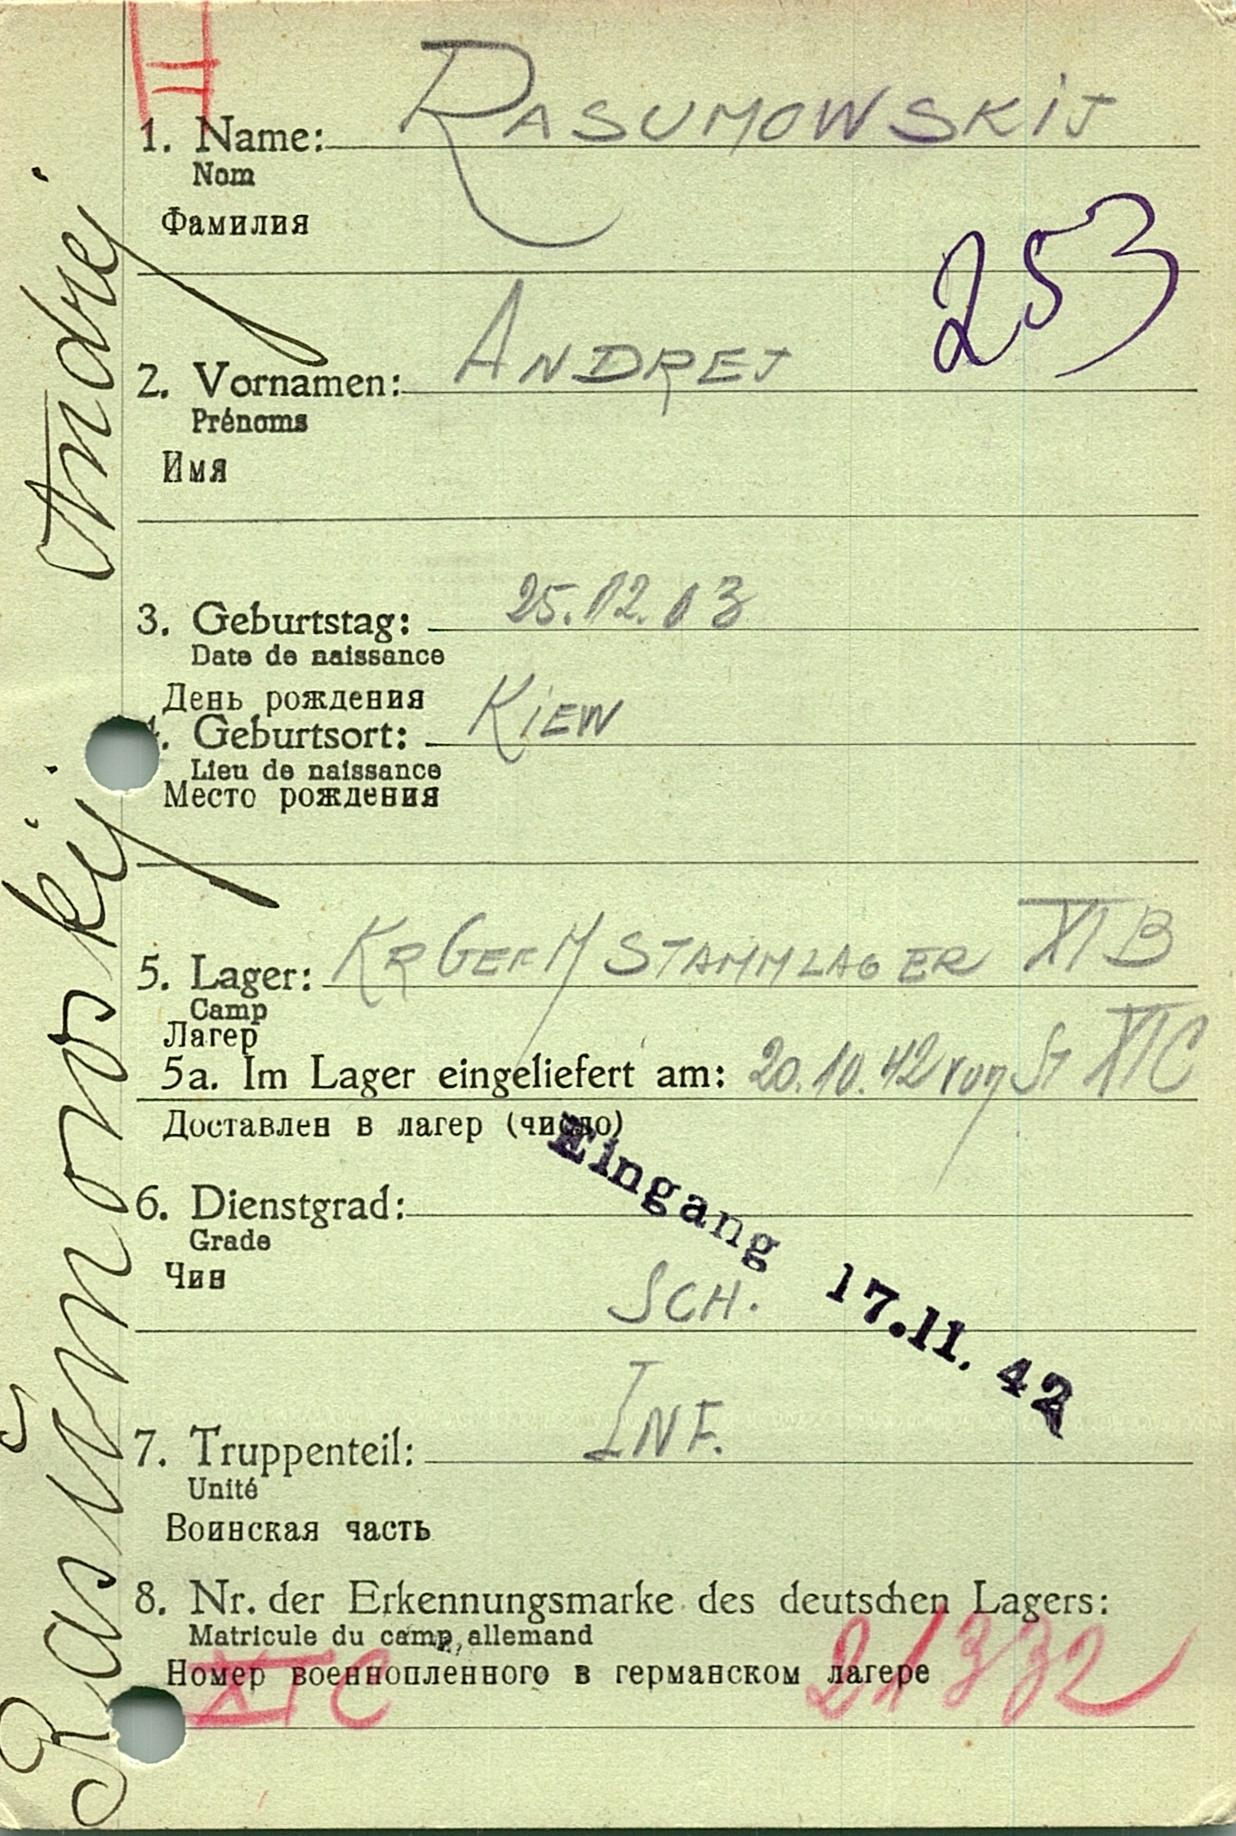 H
1. Name: RASUMOWSKIJ
Nom
Фамилия
253
2. Vornamen: ANDREJ
Prénoms
Имя
3. Geburtstag: 25.12.03
Date de naissance
День рождения
4. Geburtsort: KIEW
Lieu de naissance
Место рождения
5. Lager: KRGEF M STAMMLAGER XIB
Camp
Лагер
5a. Im Lager eingeliefert am: 20.10.42 von St XIC
Доставлен в лагер (число)
Eingang 17.11.42
6. Dienstgrad:
Grade
Чин
SCH.
7. Truppenteil: INF.
Unité
Воинская часть
8. Nr. der Erkennungsmarke des deutschen Lagers:
Matricule du camp allemand
Номер военнопленного в германском лагере
XIC 21332
Rasŭmowskij Andrej